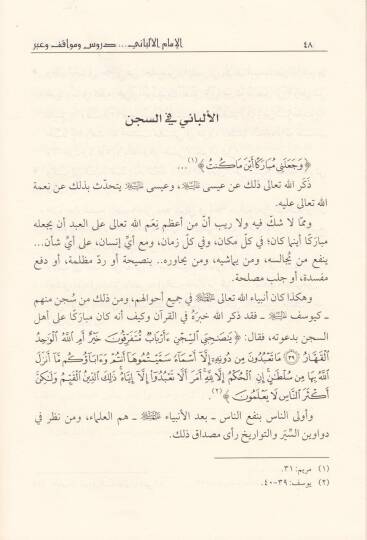 ٤٨ الإمام الألباني... دروس ومواقف وعبر
الألباني في السجن
﴿وَجَعَلَنِي مُبَارَكًا أَيْنَ مَا كُنتُ﴾(١)...
ذَكَر الله تعالى ذلك عن عيسى ﷺ، وعيسى ﷺ يتحدّث بذلك عن نعمة
الله تعالى عليه.
وممّا لا شكّ فيه ولا ريب أنّ من أعظم نِعَم الله تعالى على العبد أن يجعله
مباركًا أينما كان؛ في كلّ مكان، وفي كلّ زمان، ومع أيِّ إنسان، على أيِّ شأن...
ينفع من يُجالسه، ومن يماشيه، ومن يجاوره.. بنصيحة أو ردّ مظلمة، أو دفع
مفسدة، أو جلب مصلحة.
وهكذا كان أنبياء الله تعالى ﷺ في جميع أحوالهم، ومن ذلك من سُجن منهم
ـ كيوسف ﷺ ـ فقد ذكر الله خبرَهُ في القرآن وكيف أنه كان مباركًا على أهل
السجن بدعوته، فقال: ﴿يَٰصَٰحِبَيِ ٱلسِّجْنِ ءَأَرْبَابٌ مُّتَفَرِّقُونَ خَيْرٌ أَمِ ٱللَّهُ ٱلْوَٰحِدُ
ٱلْقَهَّارُ ﴿٣٩﴾ مَا تَعْبُدُونَ مِن دُونِهِۦٓ إِلَّآ أَسْمَآءً سَمَّيْتُمُوهَآ أَنتُمْ وَءَابَآؤُكُم مَّآ أَنزَلَ
ٱللَّهُ بِهَا مِن سُلْطَٰنٍ إِنِ ٱلْحُكْمُ إِلَّا لِلَّهِ أَمَرَ أَلَّا تَعْبُدُوٓا۟ إِلَّآ إِيَّاهُ ذَٰلِكَ ٱلدِّينُ ٱلْقَيِّمُ وَلَٰكِنَّ
أَكْثَرَ ٱلنَّاسِ لَا يَعْلَمُونَ﴾(٢).
وأولى الناس بنفع الناس ـ بعد الأنبياء ﷺ ـ هم العلماء، ومن نظر في
دواوين السِّيَر والتواريخ رأى مصداق ذلك.
(١) مريم: ٣١.
(٢) يوسف: ٣٩-٤٠.